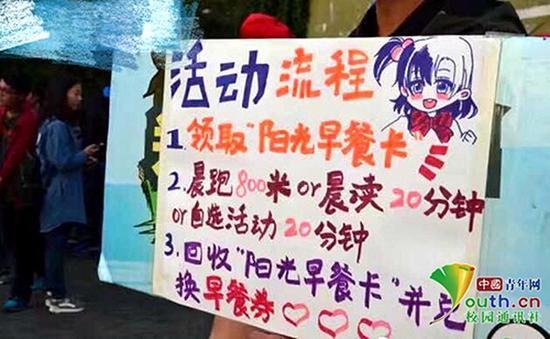 活动流程
1.领取"阳光早餐卡"
2.晨跑800米or晨读20分钟
or自选活动20分钟
3.回收"阳光早餐卡"并兑
换早餐券
中國青年网
Youth.cn
校园通讯社